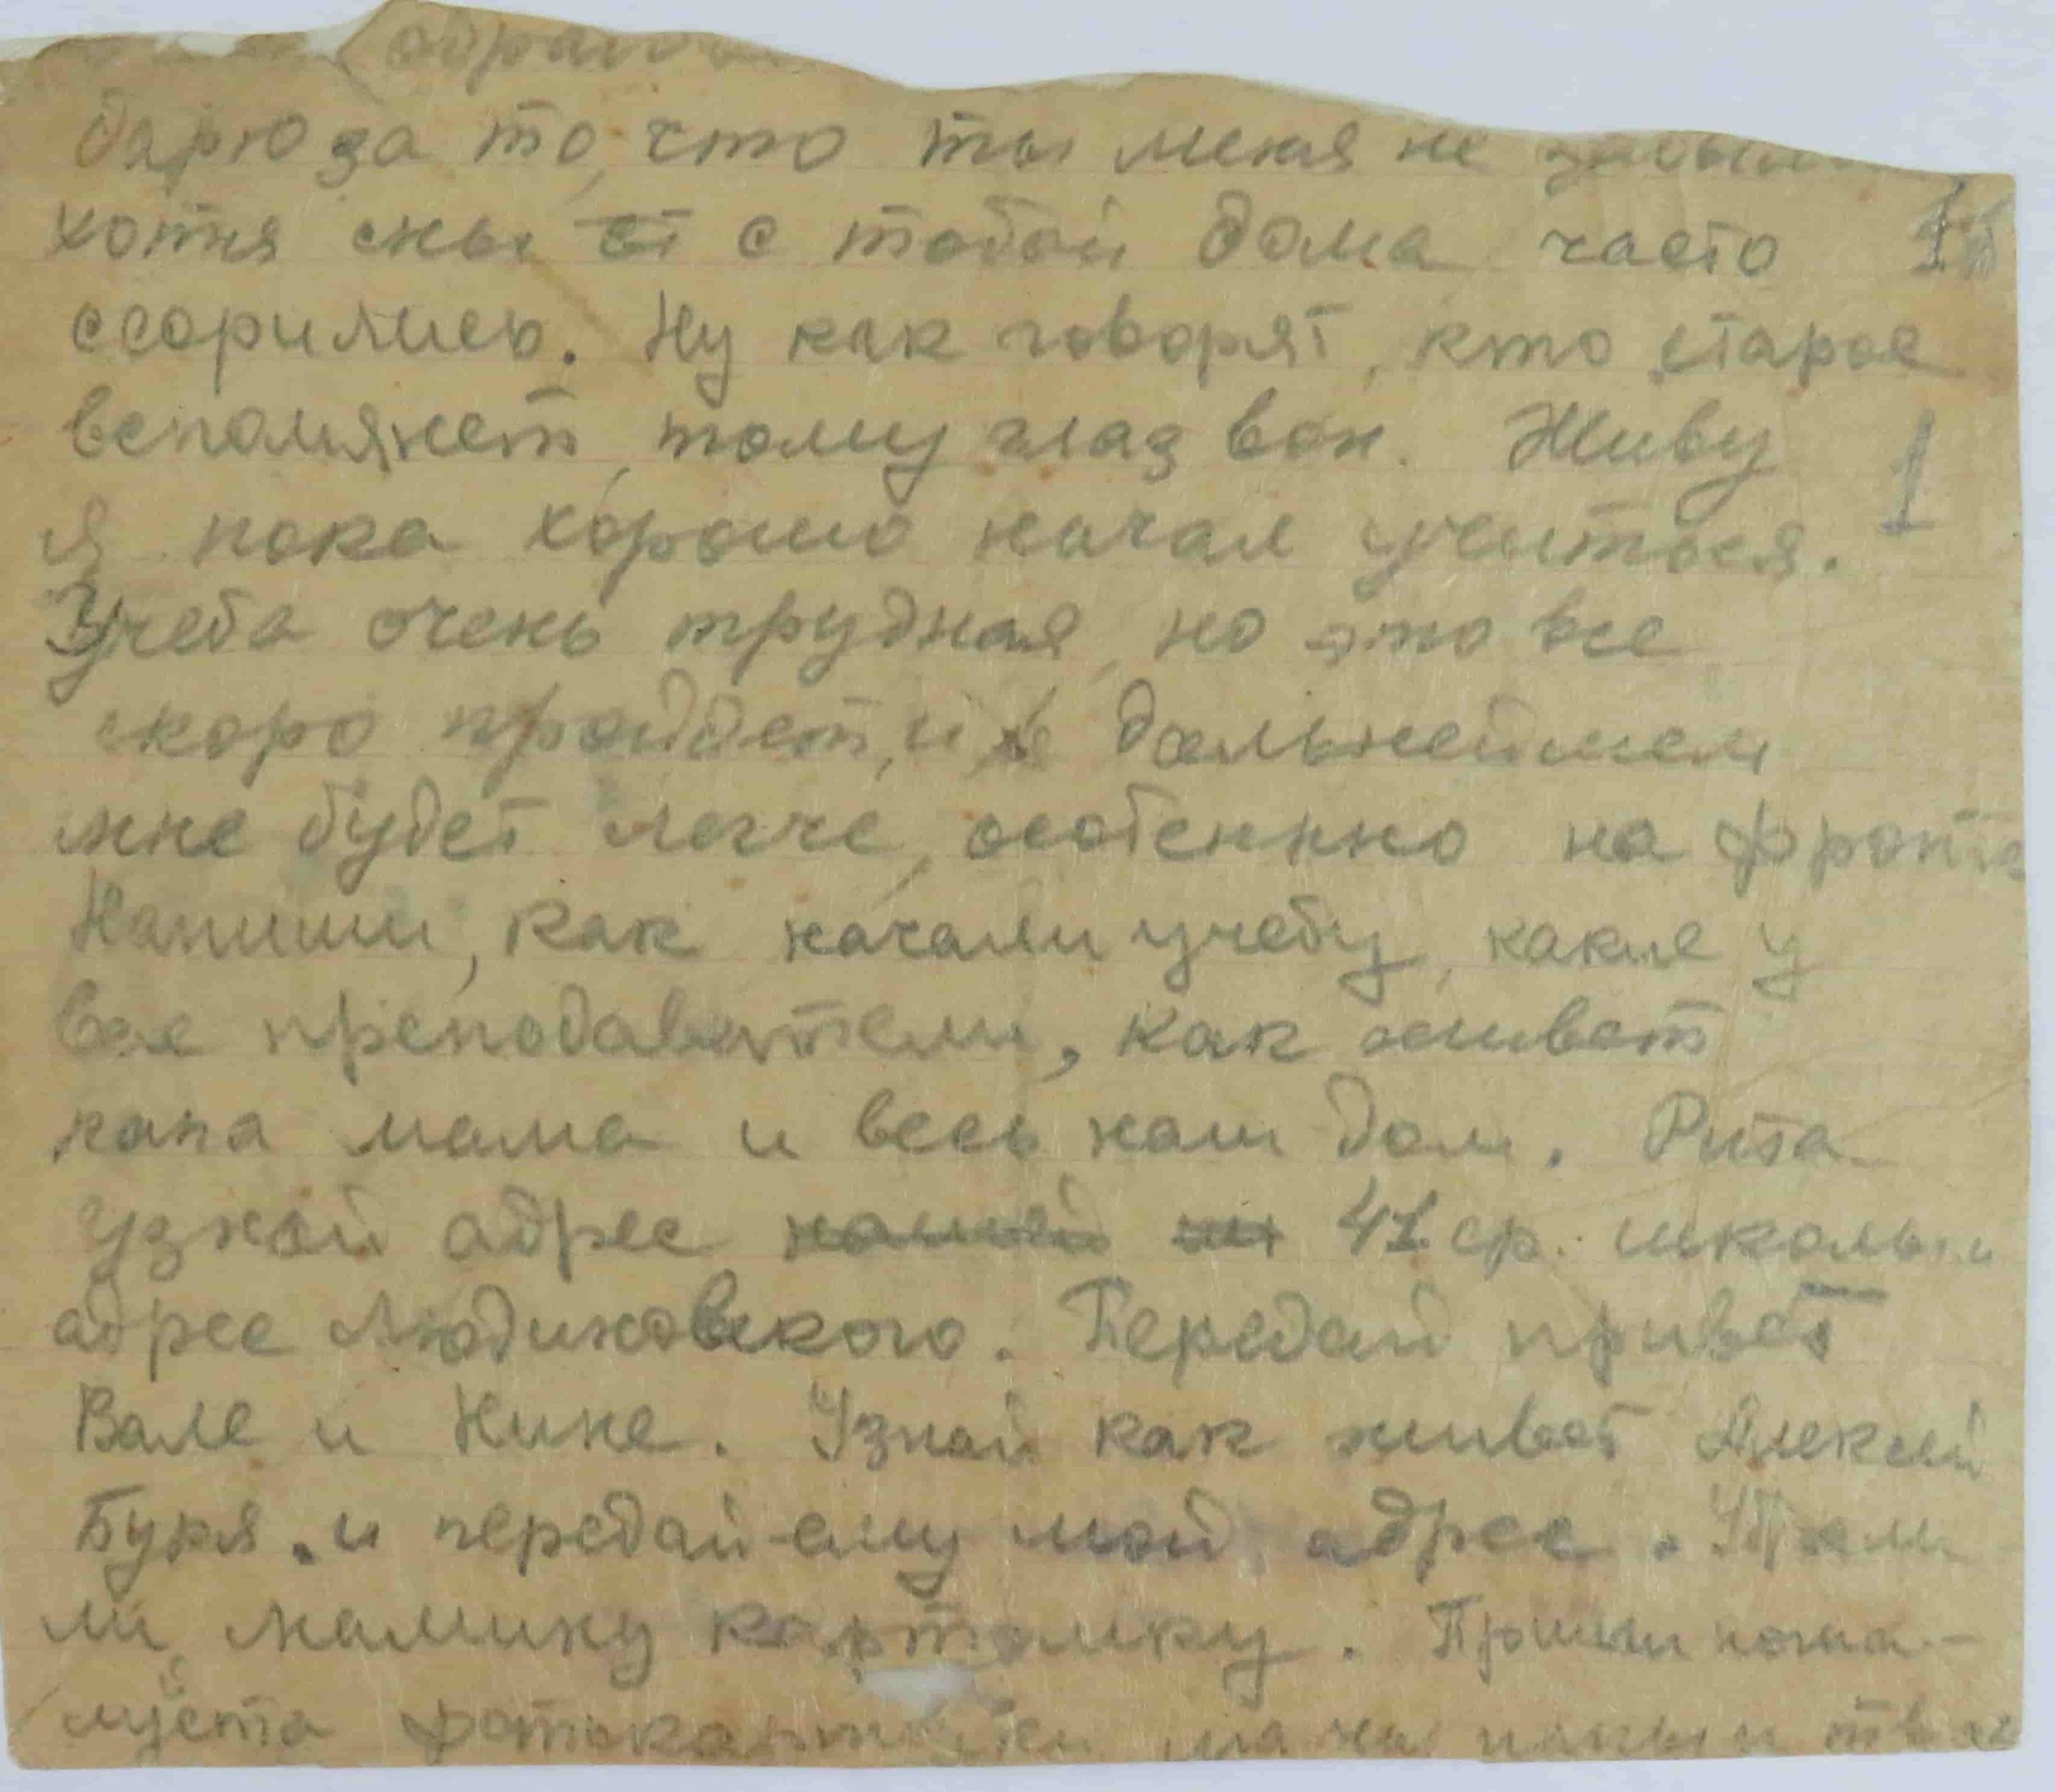 дарю за то, что ты меня не забыл
хотя мы с тобой дома часто
ссорились. Ну как говорят, кто старое
вспомянет, тому глаз вон. Живу
1
я пока хорошо начал учиться.
Учеба очень трудная, но это все
скоро пройдет, и в дальнейшем
мне будет легче, особенно на фронте
Напиши, как начали учебу, какие у
вас преподаватели, как живет
папа мама и весь наш дом. Рита
узнай адрес нашей 41 ср. школы и
адрес Людиновского. Передай привет
Вале и Нине. Узнай как живет Алексей
Буня. и передай ему мой адрес.
ли мамину картошку. Пришли пожа-
луста фотокарточки мамы папы и твою